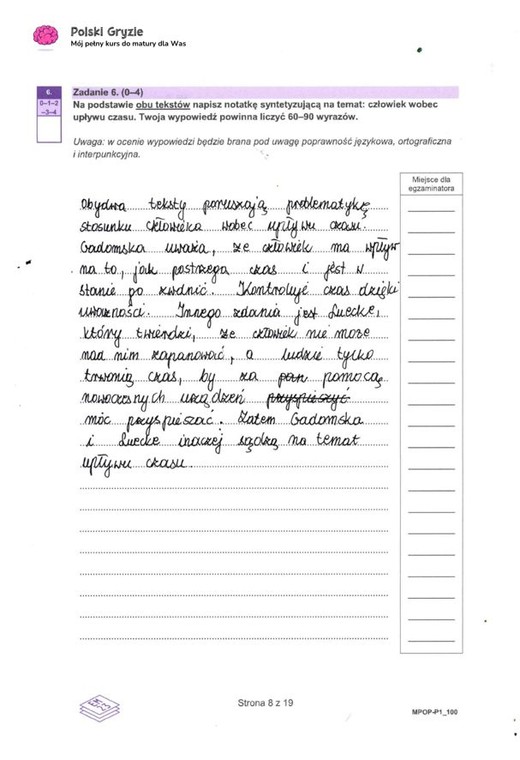 Polski Gryzie
Mój pełny kurs do matury dla Was
6.
0–1–2
–3–4
Zadanie 6. (0–4)
Na podstawie obu tekstów napisz notatkę syntetyzującą na temat: człowiek wobec
upływu czasu. Twoja wypowiedź powinna liczyć 60–90 wyrazów.
Uwaga: w ocenie wypowiedzi będzie brana pod uwagę poprawność językowa, ortograficzna
i interpunkcyjna.
Miejsce dla
egzaminatora
Obydwa teksty poruszają problematykę
stosunku człowieka wobec upływu czasu.
Gadomska uważa, że człowiek ma wpływ
na to, jak postrzega czas i jest w
stanie go zwolnić. Kontroluje czas dzięki
uważności. Innego zdania jest Luecke,
który twierdzi, że człowiek nie może
nad nim zapanować, a ludzie tylko
trwonią czas, by za pomocą
nowoczesnych urządzeń przyspieszyć
móc przyspieszać. Zatem Gadomska
i Luecke inaczej sądzą na temat
upływu czasu.
Strona 8 z 19
MPOP-P1_100